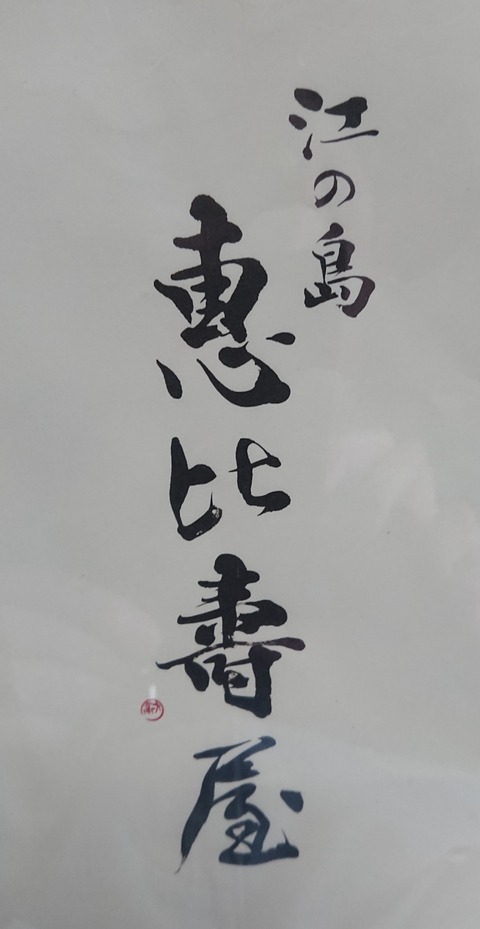 江の島
恵比寿屋